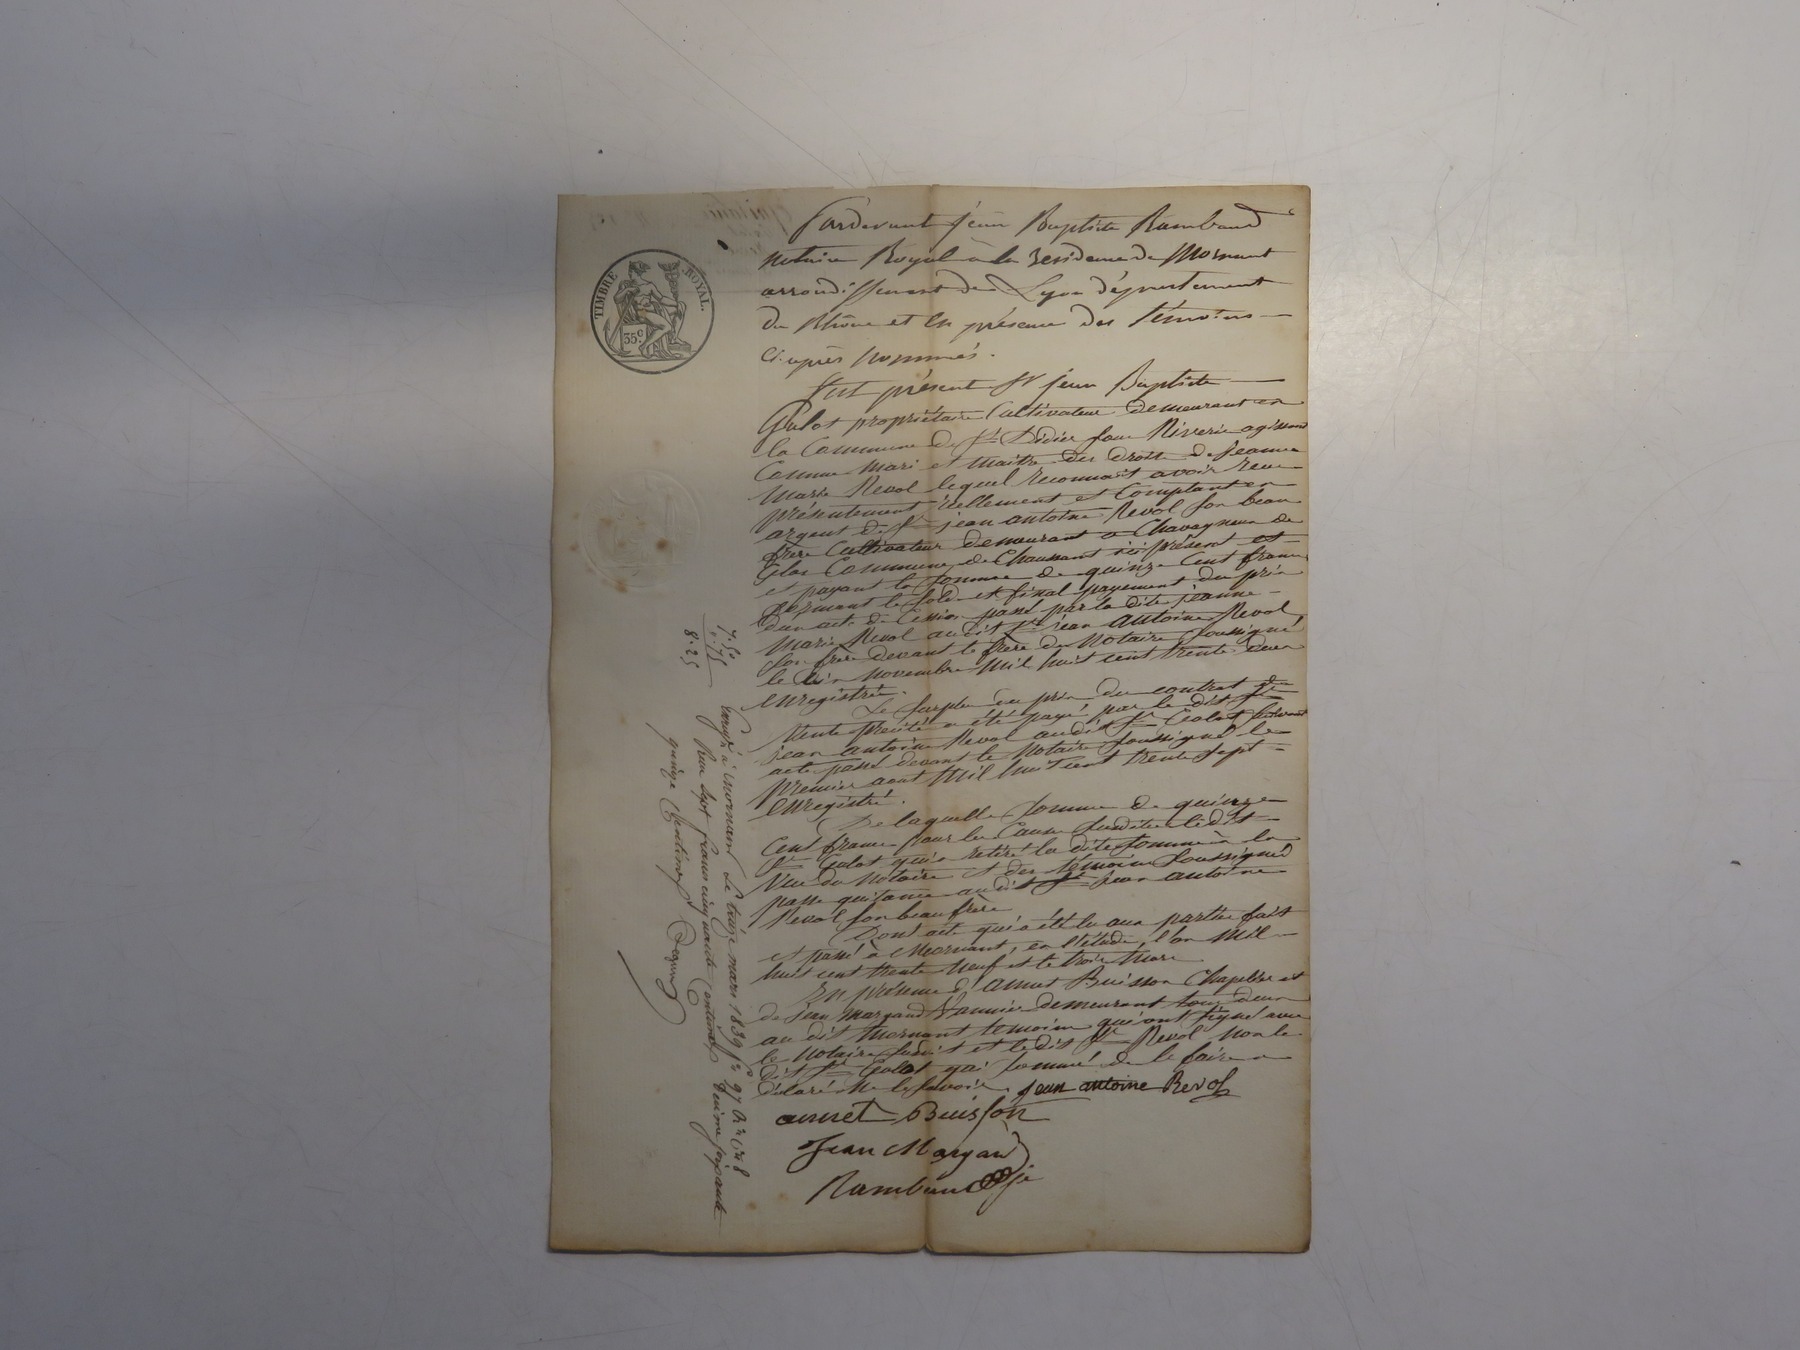 TIMBRE ROYAL.
35c.
Pardevant jean Baptiste Rambaud
notaire Royal à la residence de Mornant
arrondissement de Lyon département
du Rhône et en présence des témoins
ci-après nommés.
Fut présent Sr jean Baptiste
Gulot propriétaire Cultivateur demeurant en
la Commune de St Didier sous Riverie agissant
Comme Mari et Maitre des droits de jeanne
Marie Revol lequel reconnait avoir reçu
présentement réellement et Comptant en
argent de Sr jean antoine Revol son beau
frere Cultivateur demeurant a Chavagneux de
Commune de Chaussant ici présent et
et payant la somme de quinze Cent francs
formant le solde et final payement du prix
d'un acte de Cession passé par la dite jeanne
Marie Revol audit Sr jean antoine Revol
son frere devant le frere du Notaire soussigné
le novembre Mil huit cent trente deux
enregistré.
Le surplus du prix du contrat de
Vente précité a été payé par le dit Sr
jean antoine Revol audit Sr Golot suivant
acte passé devant le Notaire soussigné le
premier aout Mil huit cent trente sept
enregistré.
De laquelle somme de quinze
Cent francs pour les Causes susdites ledit
Sr Golot qui a retiré la dite somme à la
Vue du Notaire et des témoins soussignés
passe quitance audit Sr jean antoine
Revol son beau frère
Dont acte qui a été lu aux parties fait
et passé à Mornant, en l'étude, l'an Mil
huit cent trente neuf et le trois Mars
En présence d'annet Buisson Chapelier et
de jean Margand Vannier demeurant tous deux
au dit Mornant témoins qui ont signé avec
le Notaire susdit et ledit Sr Revol non le
dit Sr Golot qui sommé de le faire a
déclaré ne le savoir. jean antoine Revol
annet Buisson
Jean Margand
Rambaud
7.50
0.75
8.25
à Mornant le treize mars 1839 fo 97
Reçu sept francs cinquante Centimes
quinze Centimes